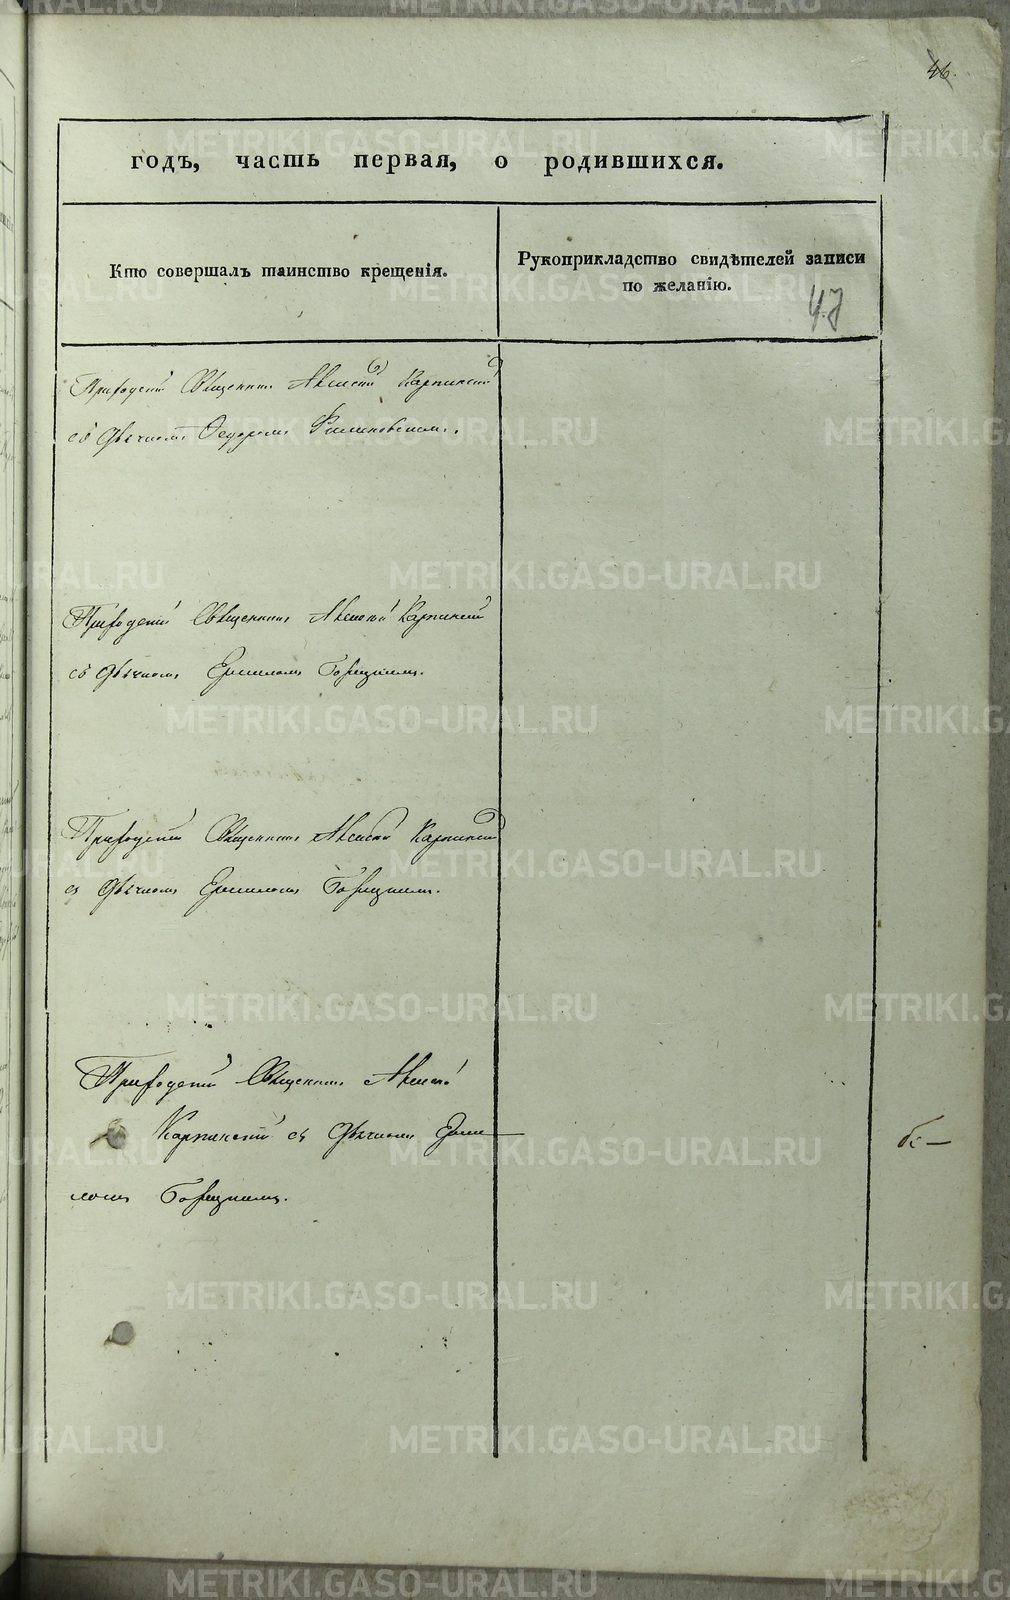 46.
годъ, часть первая, о родившихся.
Кто совершалъ таинство крещенія.
Рукоприкладство свидѣтелей записи
по желанію.
47
Приходскій Священникъ Алексѣй Карпинскій
съ Дьячкомъ Ѳедоромъ
Приходскій Священникъ Алексѣй Карпинскій
съ Дьячкомъ Ермиломъ
Приходскій Священникъ Алексѣй Карпинскій
съ Дьячкомъ Ермиломъ
Приходскій Священникъ Алексѣй
Карпинскій съ Дьячкомъ Ерми-
ломъ
METRIKI.GASO-URAL.RU